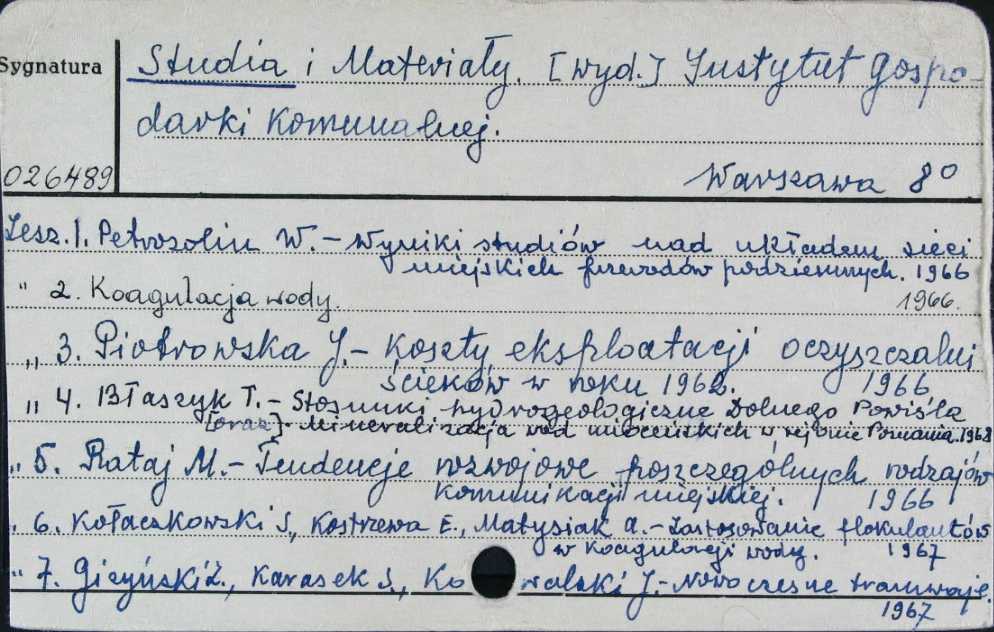 Sygnatura
Studia i Materiały. [wyd.] Instytut Gospo-
darki Komunalnej.
026489
Warszawa 8°
Zesz. 1. Petrozolin W. - Wyniki studiów nad układem sieci
miejskich przewodów podziemnych. 1966
" 2. Koagulacja wody.
1966.
" 3. Piotrowska J. - Koszty eksploatacji oczyszczalni
ścieków w roku 1962. 1966
" 4. Błaszyk T. - Stosunki hydrogeologiczne Dolnego Powiśla
[oraz]. Mineralizacja wód mioceńskich w rejonie Poznania. 1968
" 5. Rataj M. - Tendencje rozwojowe poszczególnych rodzajów
komunikacji miejskiej. 1966
" 6. Kołaczkowski S., Kostrzewa E., Matysiak A. - Zastosowanie flokulantów
w koagulacji wody. 1967
" 7. Giżyński Z., Karasek S., Ko walski J. - Nowoczesne tramwaje.
1967